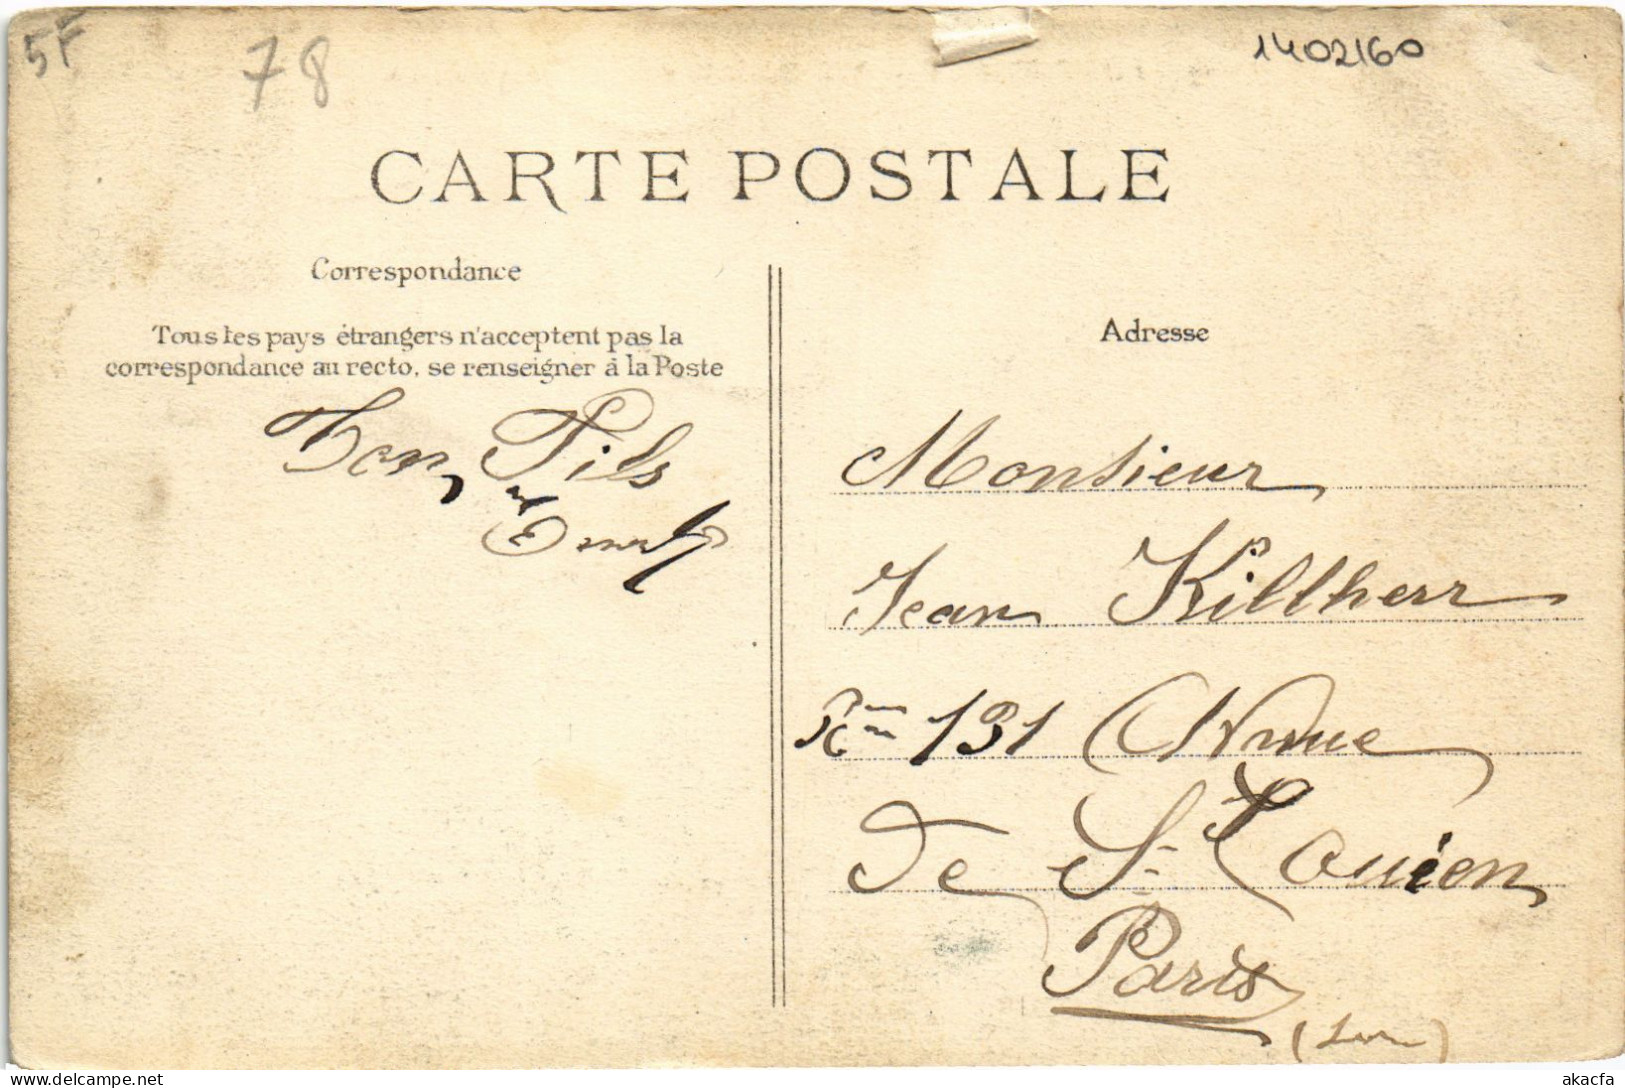 5F
78
1402160
CARTE POSTALE
Correspondance
Tous les pays étrangers n'acceptent pas la
correspondance au recto, se renseigner à la Poste
Ton Fils
Adresse
Monsieur
Jean Killherr
131 Avenue
de St Louien
Paris
akacfa